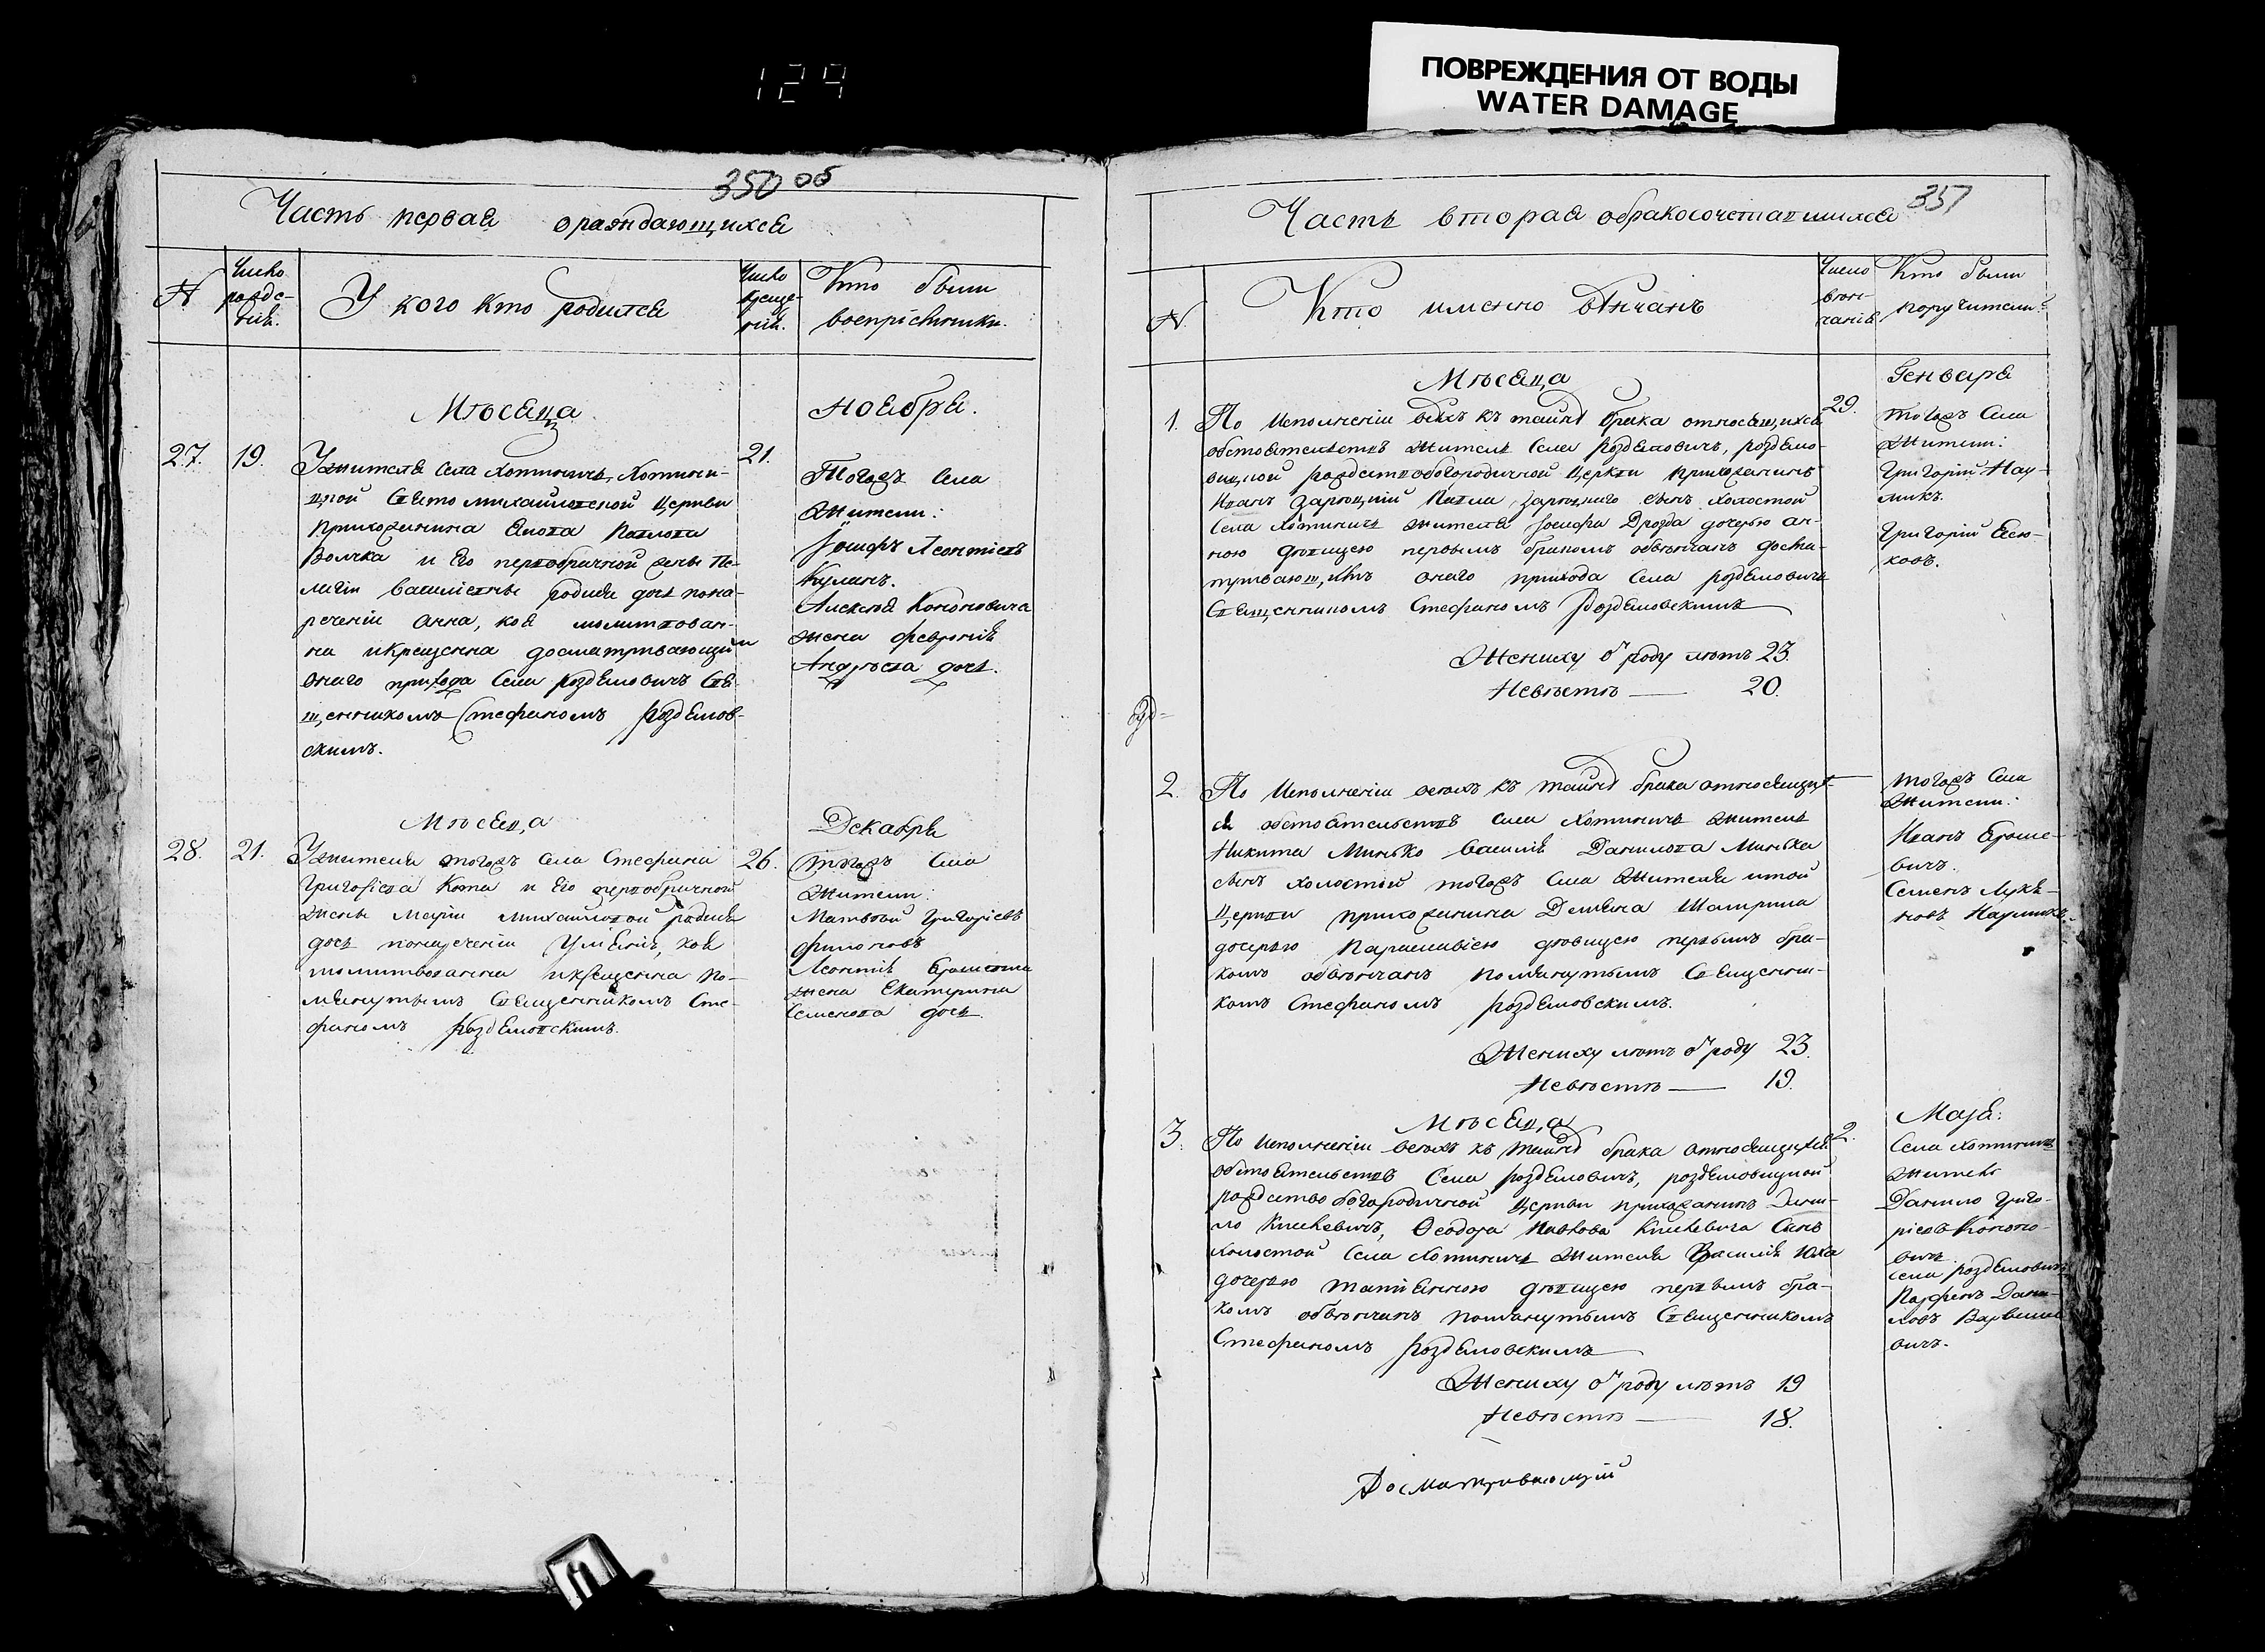 129
ПОВРЕЖДЕНИЯ ОТ ВОДЫ
WATER DAMAGE
350 об
Часть первая о раждающихся
№
Число рожде-нія.
У кого кто родился
Число креще-нія.
Кто были воспріємники.
Мѣсяца
Ноября.
27.
19.
У жителя Села Хотиничъ, Хотини-
цкой Свято михайловской Церкви
Прихожанина Павлова
Волчка и Его первобрачной жены Пе-
лагіи Василіевны родися дочь пона-
реченіи Анна, коя молитвован-
на и крещенна досматривающимъ
онаго прихода Села Роздяловичъ Свя-
щенникомъ Стефаномъ Роздялов-
скимъ.
21.
Тогожъ Села
Жители:
Іосифъ Леонтіевъ
Куланъ.
Алексѣя Кононовича
жена Февронія
Андреева дочь.
Мѣсяца
Декабря
28.
21.
У жителя тогожъ Села Стефана
Григорієва Кота и Его первобрачной
жены Маріи Михайловой родися
дочь понареченіи Уліянія, коя
молитвованна и крещенна по-
мянутымъ Священникомъ Сте-
фаномъ Роздяловскимъ.
26.
Тогожъ Села
Жители:
Матвѣй Григорієвъ
Филоновъ
Леонтія
жена Екатерина
Семенова дочь.
357
Часть вторая о бракосочетавшихся
№
Кто именно вѣнчанъ
Число вѣн-чанія
Кто были поручители
Мѣсяца
Генваря
1.
По Исполненіи всѣхъ къ тайнѣ брака относящихся
обстоятельствъ житель Села Роздяловичъ, Роздяло-
вицкой рождествобогородичной Церкви прихожанинъ
Иванъ Зарѣцкій Павла Зарѣцкаго сынъ холостой
Села Хотиничъ жителя Іосифа Дрозда дочерью Ан-
ною дѣвицею первымъ бракомъ обвѣнчанъ досма-
тривающимъ онаго прихода Села Роздяловичъ
Священникомъ Стефаномъ Роздяловскимъ
Жениху отъ роду лѣтъ 23.
Невѣстѣ — 20.
29.
тогожъ Села
Жители:
Григорій Нау-
микъ.
Григорій
2.
По Исполненіи всѣхъ къ тайнѣ брака относящих-
ся обстоятельствъ Села Хотиничъ житель
Никита Минько Василія Данилова Минька
сынъ холостой тогожъ Села Жителя и той
Церкви прихожанина Демяна
дочерью Параскевією дѣвицею первымъ бра-
комъ обвѣнчанъ помянутымъ Священни-
комъ Стефаномъ Роздяловскимъ.
Жениху лѣтъ отъ роду 23.
Невѣстѣ — 19.
тогожъ Села
Жители:
Иванъ
вичъ.
Семенъ Лукъя-
новъ Наумикъ.
Мѣсяца
Маја:
3.
По исполненіи всѣхъ къ тайнѣ брака относящихся
обстоятельствъ Села Роздяловичъ, роздяловицкой
рождество богородичной Церкви прихожанинъ Дани-
ло Кискевичъ, Ѳеодора Павлова Кискевича Сынъ
холостой Села Хотиничъ Жителя Василія Юха
дочерью Татіянною дѣвицею первымъ бра-
комъ обвѣнчанъ помянутымъ Священникомъ
Стефаномъ Роздяловскимъ
Жениху отъ роду лѣтъ 19
Невѣстѣ — 18.
2.
Села Хотиничъ
Житель
Данило Григо-
рієвъ Кононо-
вичъ
Села Роздяловичъ
Парфенъ Дани-
ловъ
вичъ.
Досматривающій